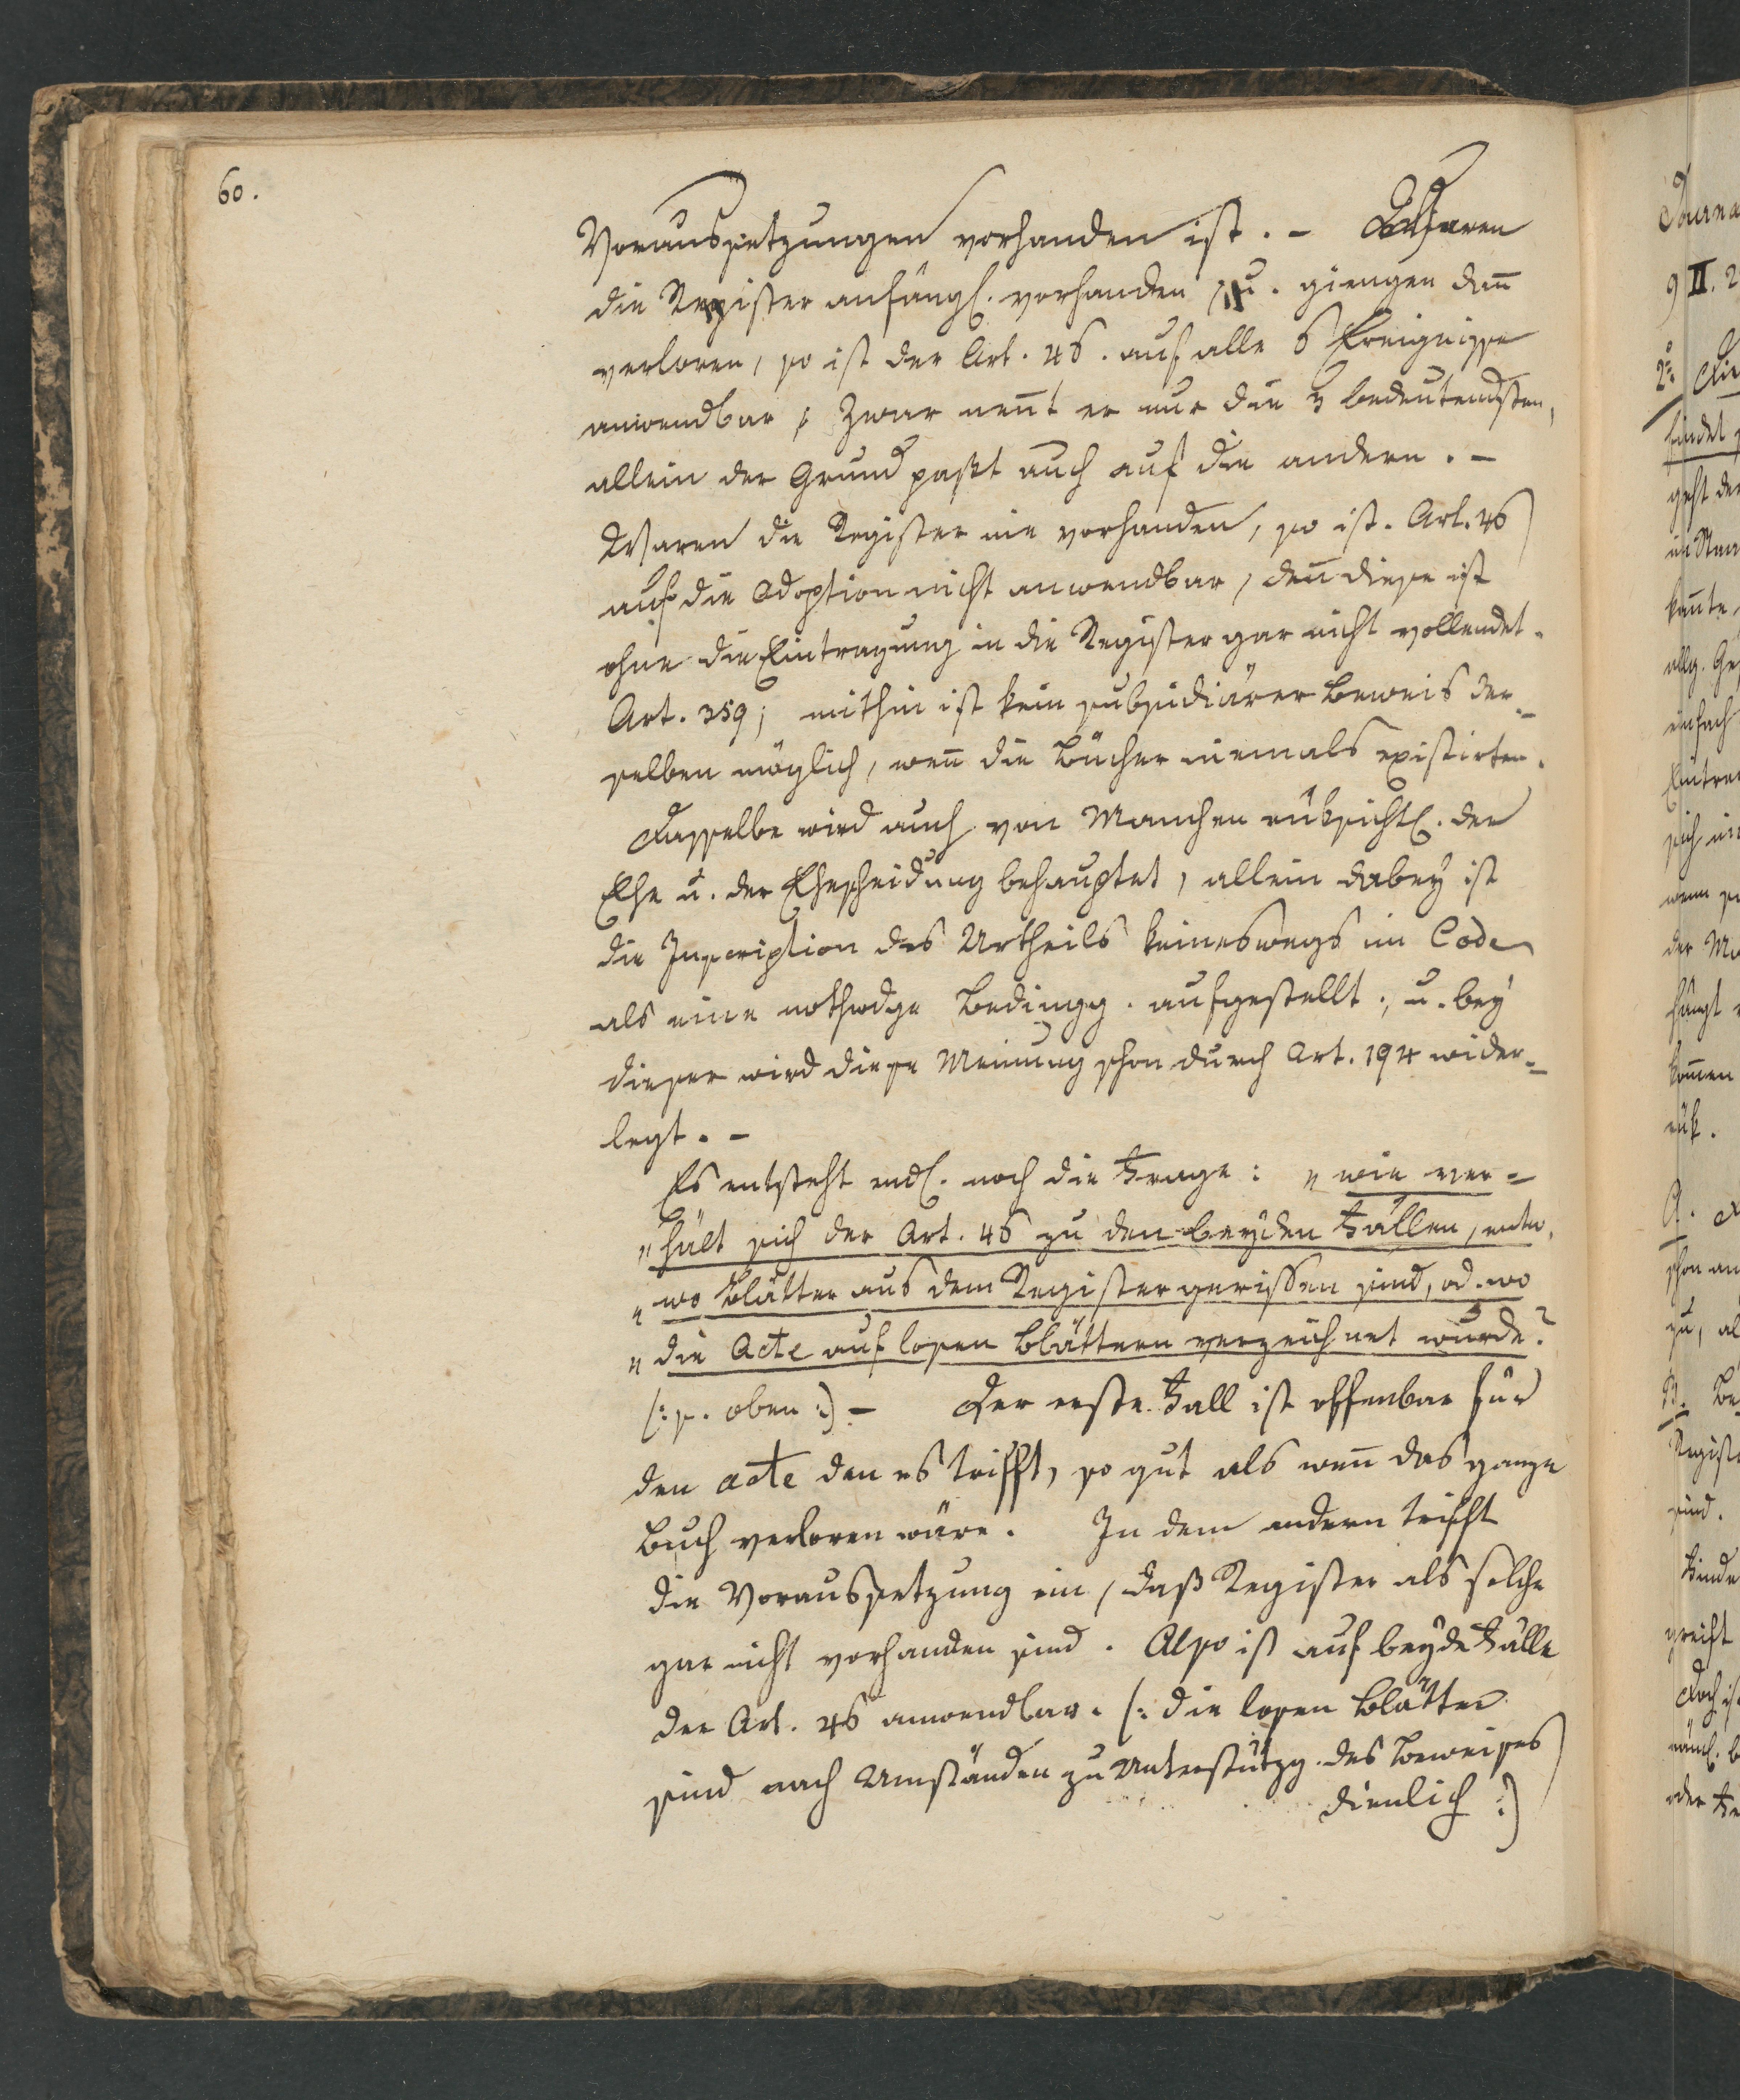 60.
Voraussetzungen vorhanden ist. – Waren
die Register anfängl. vorhanden, u. giengen dan̄
verloren, so ist der Art. 46. auf alle 5 Ereignisse
anwendbar; Zwar nen̄t er nur die 3 bedeutendsten,
allein der Grund paßt auch auf die andern. –
Waren die Register nie vorhanden, so ist Art. 46
auf die Adoption nicht anwendbar, den̄ diese ist
ohne die Eintragung in die Register gar nicht vollendet.
Art. 359; mithin ist kein subsidiärer Beweis der-
selben möglich, wen̄ die Bücher niemals existirten.
Dasselbe wird auch von Manchen rüksichtl. der
Ehe u. der Ehescheidung behauptet, allein dabey ist
die Inscription des Urtheils keineswegs im Code
als eine nothwdge Bedingg. aufgestellt, u. bey
dieser wird diese Meinung schon durch Art. 194 wider-
legt. –
Es entsteht endl. noch die Frage: „wie ver-
„hält sich der Art. 46 zu den beyden Fällen, entw.
„wo Blätter aus dem Register gerissen sind, od. wo
„die Acte auf losen Blättern verzeichnet wurde?
(: s. oben :) – Der erste Fall ist offenbar für
den acte den es trifft, so gut als wen̄ das ganze
Buch verloren wäre. In dem andern trifft
die Voraussetzung ein, daß Register als solche
gar nicht vorhanden sind. Also ist auf beyde Fälle
der Art. 46 anwendbar. (: die losen Blätter
sind nach Umständen zu Unterstützg. des Beweises
dienlich :)